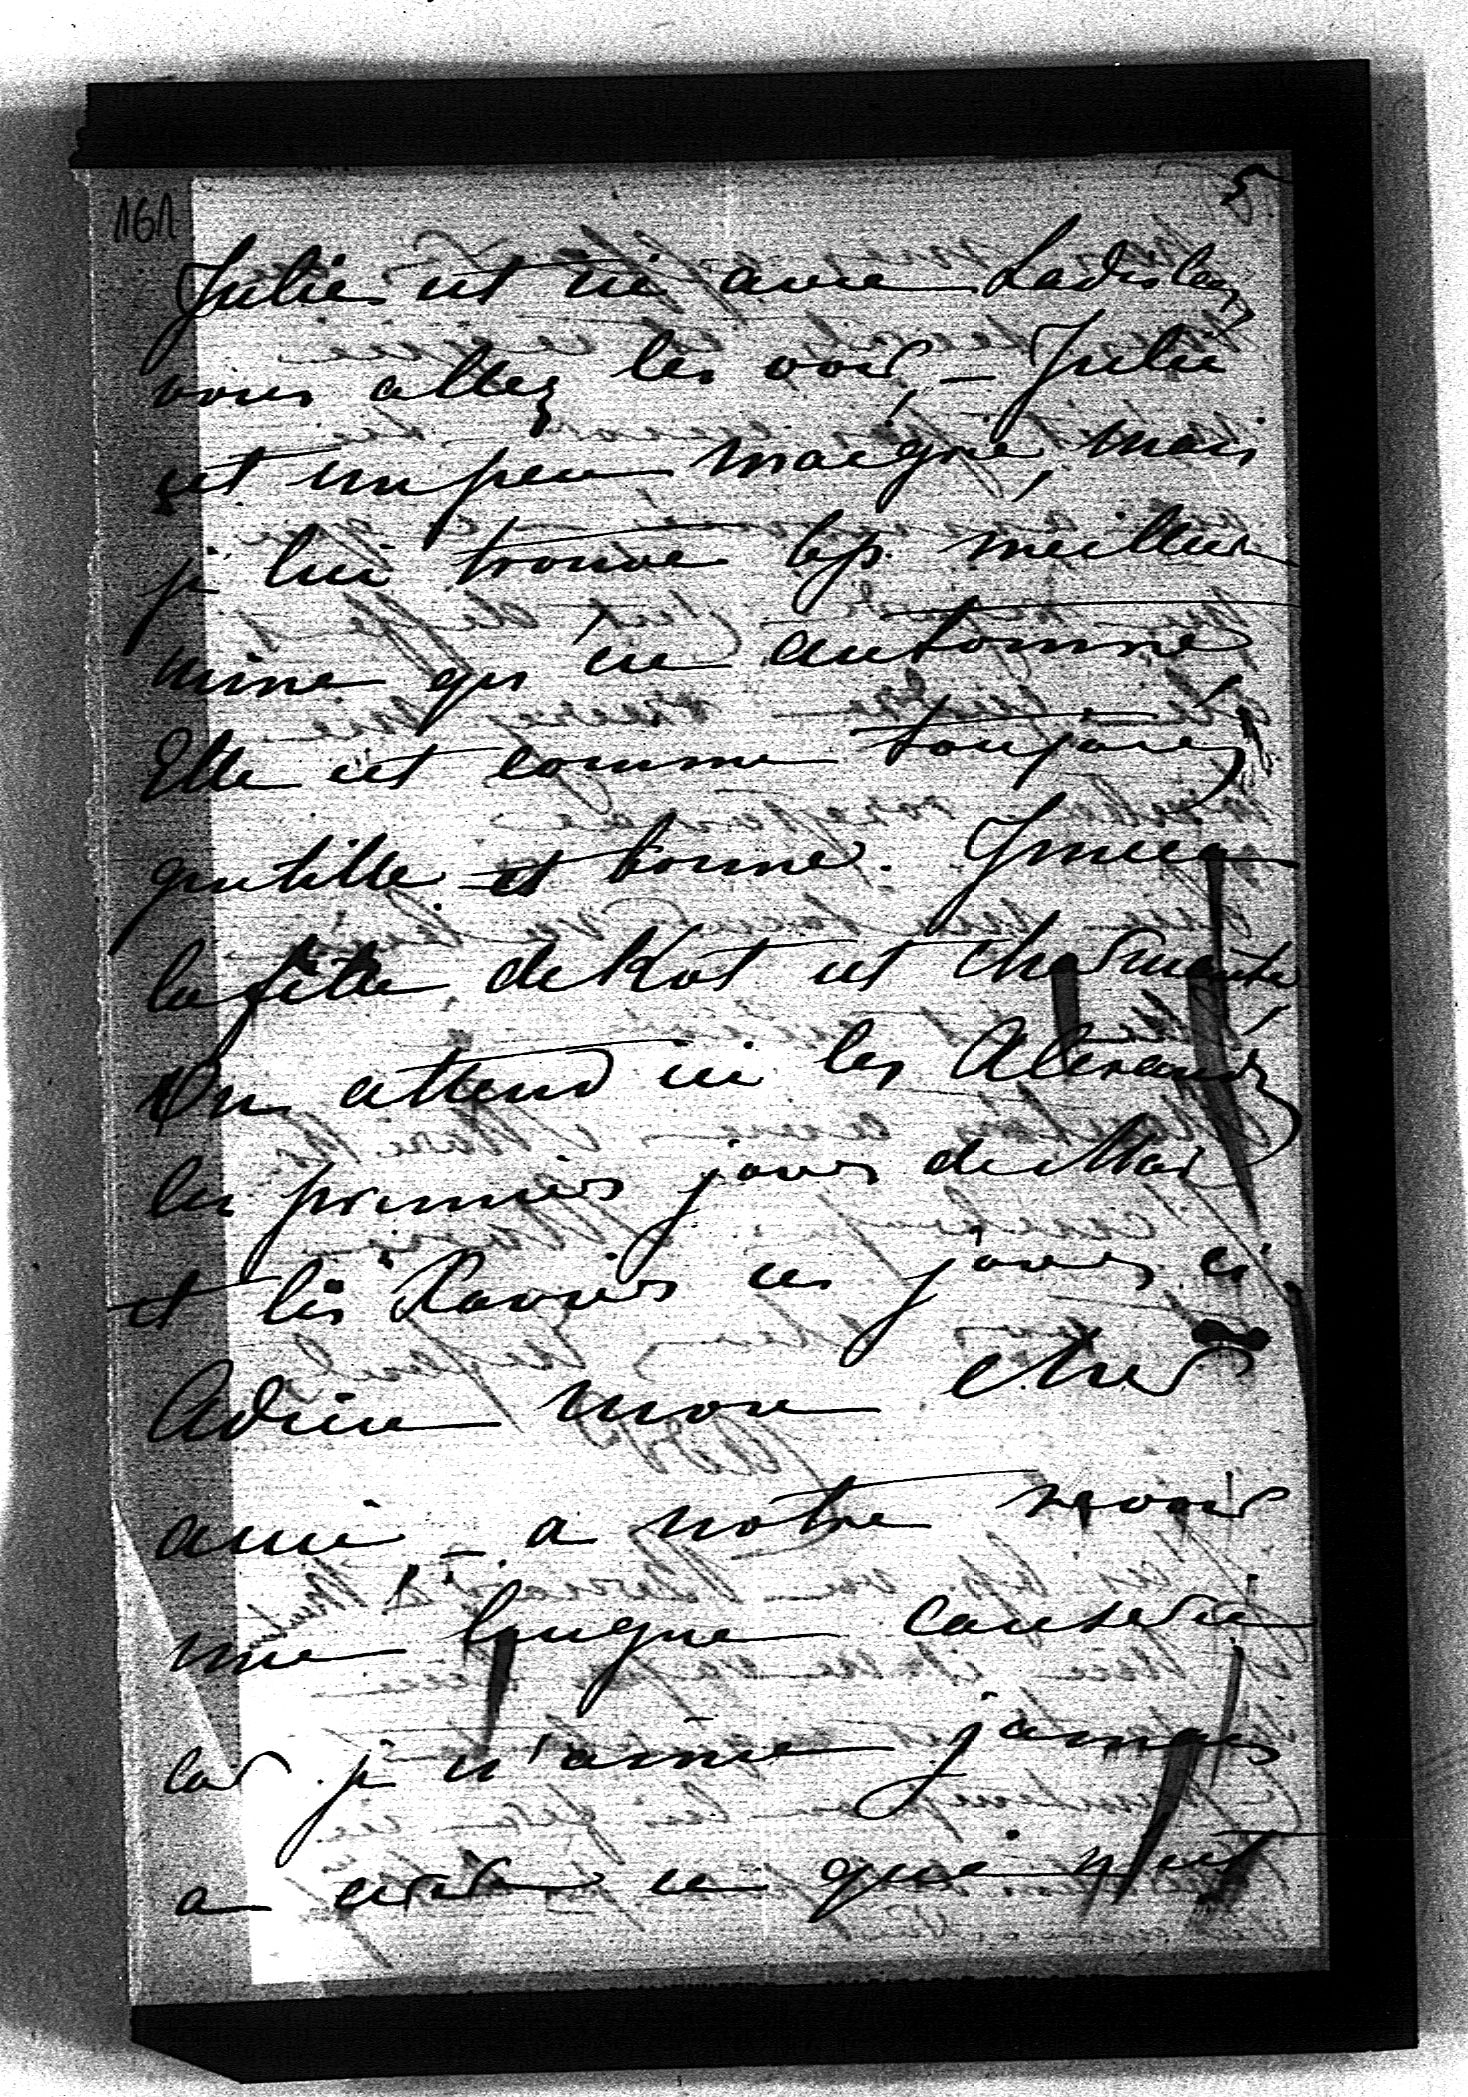 161
5
Julie est ici avec Ladislas,
vous allez les voir, – Julie
est un peu maigrie, mais
je lui trouve bp. meilleure
mine qu'en automne
Elle est comme toujours
gentille et bonne.
la fille de Kot est charmante
On attend ici les Alexandre
les premiers jours de Mai
et les Xavier ces jours ci
Adieu mon cher
ami – a notre revoir
une longue causerie
car je n'aime jamais
a ecrire ce qui n'est